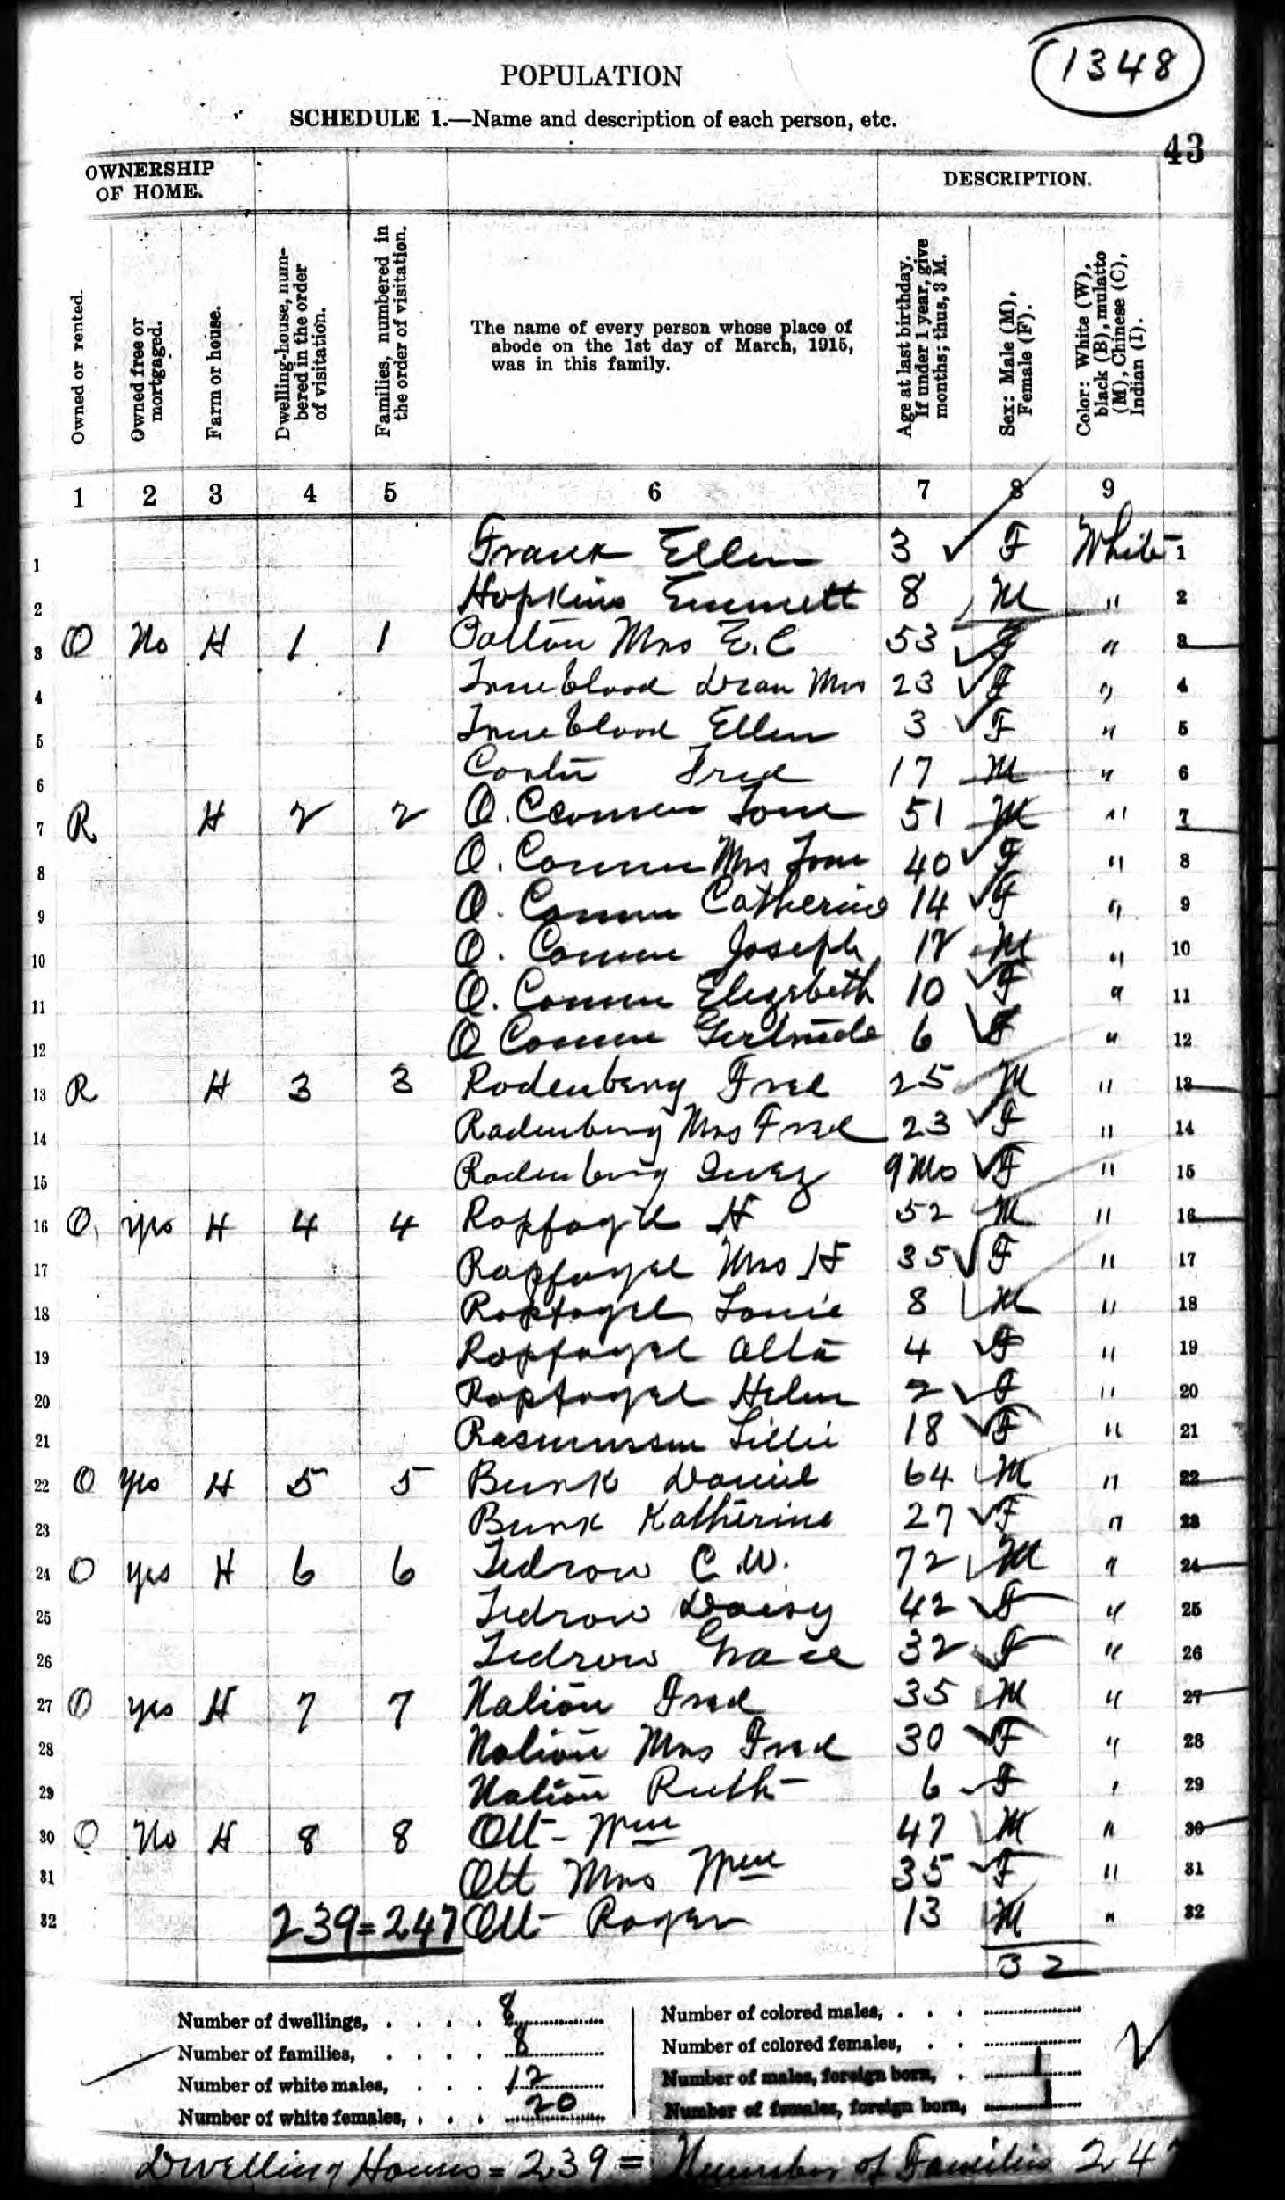 1348
POPULATION
SCHEDULE 1.—Name and description of each person, etc.
43
OWNERSHIP OF HOME.
DESCRIPTION.
Owned or rented.
Owned free or mortgaged.
Farm or house.
Dwelling-house, numbered in the order of visitation.
Families, numbered in the order of visitation.
The name of every person whose place of
abode on the 1st day of March, 1915,
was in this family.
Age at last birthday. If under 1 year, give months; thus, 3 M.
Sex: Male (M), Female (F).
Color: White (W), black (B), mulatto (M), Chinese (C), Indian (I).
1 2 3 4 5 6 7 8 9
1 Frank Ellen 3 F White 1
2 Hopkins Emmett 8 M " 2
3 O No H 1 1 Mrs E. C 53 F " 3
4 Trueblood Dean Mrs 23 F " 4
5 Trueblood Ellen 3 F " 5
6 Fred 17 M " 6
7 R H 2 2 O. Connor Tom 51 M " 7
8 O. Connor Mrs Tom 40 F " 8
9 O. Connor Catherine 14 F " 9
10 O. Connor Joseph 12 M " 10
11 O. Connor Elizabeth 10 F " 11
12 O Connor Gertrude 6 F " 12
13 R H 3 3 Rodenberg Fred 25 M " 13
14 Rodenberg Mrs Fred 23 F " 14
15 Rodenberg Inez 9 Mo F " 15
16 O. Yes H 4 4 Ropfogel H 52 M " 16
17 Ropfogel Mrs H 35 F " 17
18 Ropfogel Louie 8 M " 18
19 Ropfogel Alta 4 F " 19
20 Ropfogel Helen 2 F " 20
21 Rasmussen Lillie 18 F " 21
22 O Yes H 5 5 Bunk Daniel 64 M " 22
23 Bunk Katherine 27 F " 23
24 O Yes H 6 6 Tedrow C. W. 72 M " 24
25 Tedrow Daisy 42 F " 25
26 Tedrow Grace 32 F " 26
27 O Yes H 7 7 Nation Fred 35 M " 27
28 Nation Mrs Fred 30 F " 28
29 Nation Ruth 6 F " 29
30 O No H 8 8 Ott Wm 47 M " 30
31 Ott Mrs Wm 35 F " 31
32 239=247 Ott Roger 13 M " 32
32
Number of dwellings, . . . . 8
Number of families, . . . . 8
Number of white males, . . . 12
Number of white females, . . . 20
Number of colored males, . . .
Number of colored females, . .
Number of males, foreign born, . 1
Number of females, foreign born, 1
Dwelling Houses = 239 = Number of Families 24